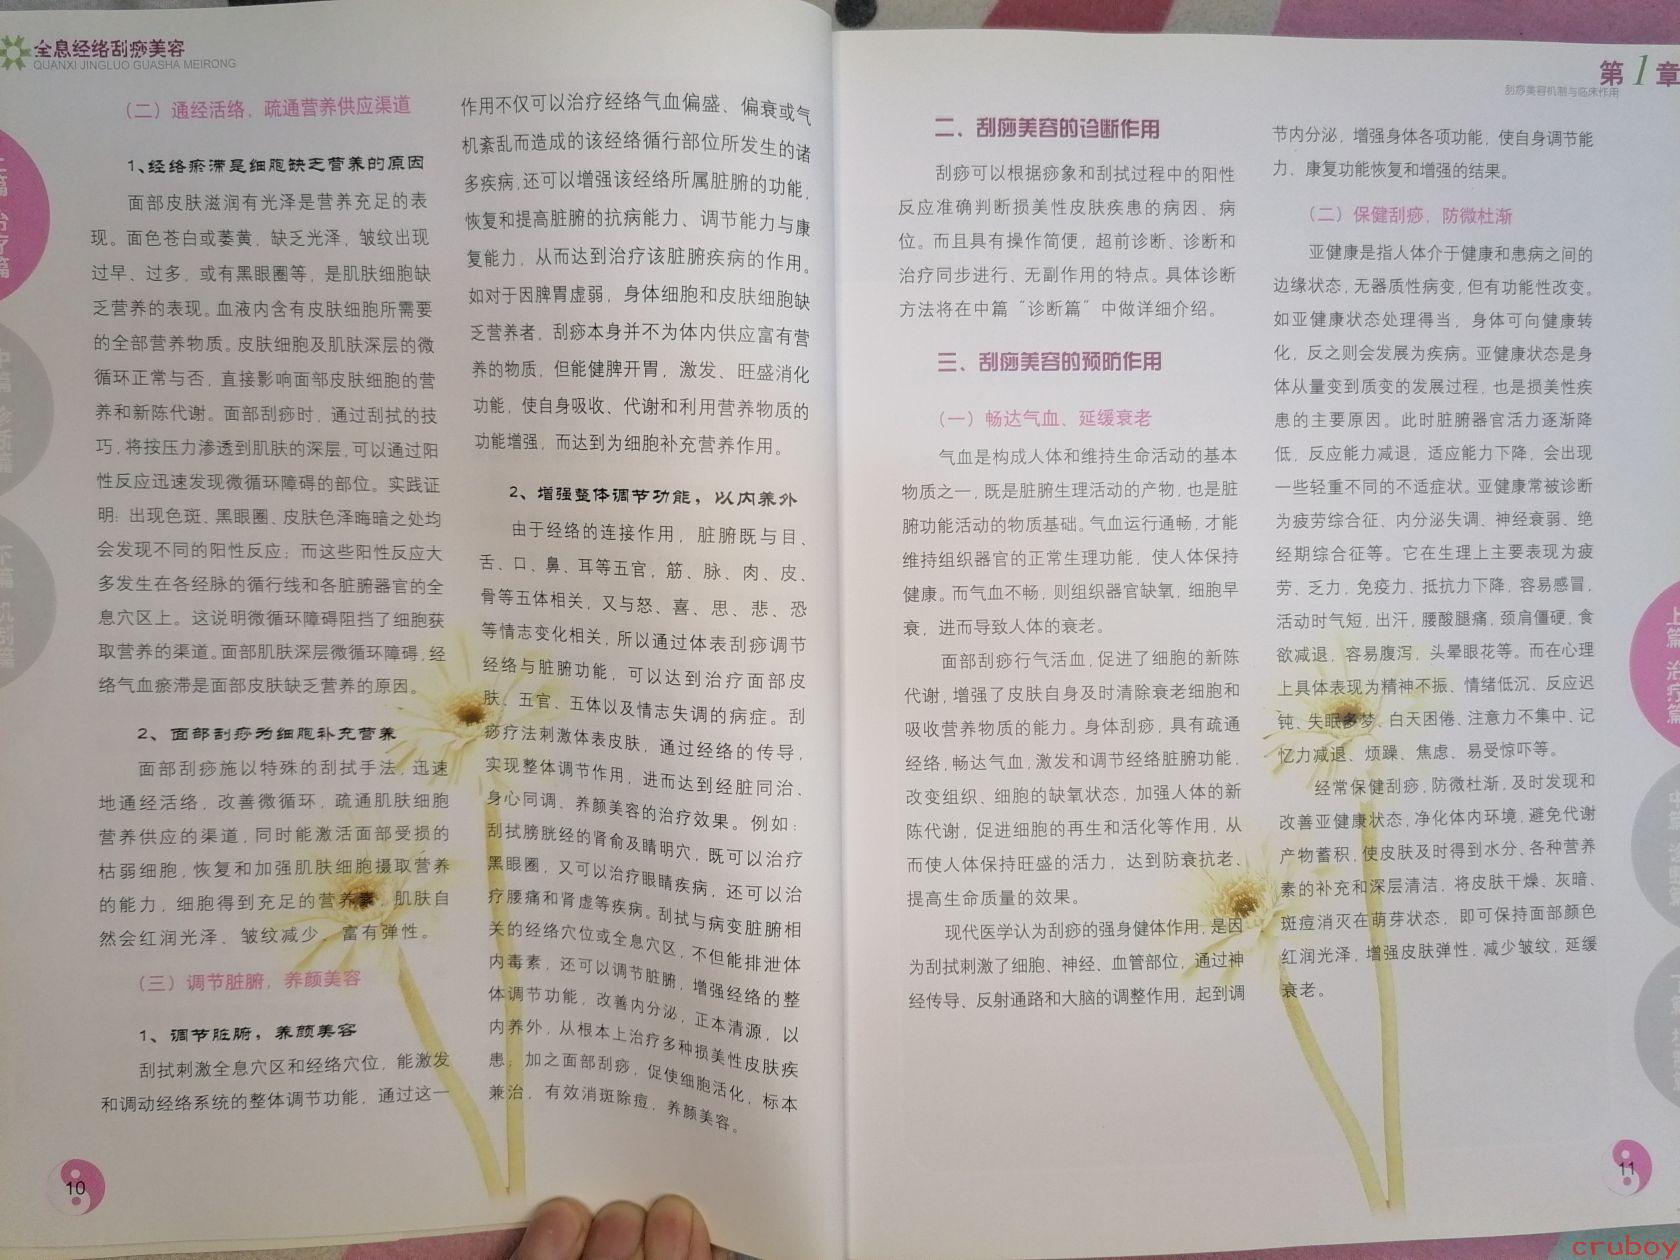 全息经络刮痧美容
QUANXI JINGLUO GUASHA MEIRONG
（二）通经活络，疏通营养供应渠道
1、经络瘀滞是细胞缺乏营养的原因
面部皮肤滋润有光泽是营养充足的表
现。面色苍白或萎黄，缺乏光泽，皱纹出现
过早、过多，或有黑眼圈等，是肌肤细胞缺
乏营养的表现。血液内含有皮肤细胞所需要
的全部营养物质。皮肤细胞及肌肤深层的微
循环正常与否，直接影响面部皮肤细胞的营
养和新陈代谢。面部刮痧时，通过刮拭的技
巧，将按压力渗透到肌肤的深层，可以通过阳
性反应迅速发现微循环障碍的部位。实践证
明：出现色斑、黑眼圈、皮肤色泽晦暗之处均
会发现不同的阳性反应；而这些阳性反应大
多发生在各经脉的循行线和各脏腑器官的全
息穴区上。这说明微循环障碍阻挡了细胞获
取营养的渠道。面部肌肤深层微循环障碍，经
络气血瘀滞是面部皮肤缺乏营养的原因。
2、面部刮痧为细胞补充营养
面部刮痧施以特殊的刮拭手法，迅速
地通经活络，改善微循环，疏通肌肤细胞
营养供应的渠道，同时能激活面部受损的
枯弱细胞，恢复和加强肌肤细胞摄取营养
的能力，细胞得到充足的营养素，肌肤自
然会红润光泽、皱纹减少、富有弹性。
（三）调节脏腑，养颜美容
1、调节脏腑，养颜美容
刮拭刺激全息穴区和经络穴位，能激发
和调动经络系统的整体调节功能，通过这一
作用不仅可以治疗经络气血偏盛、偏衰或气
机紊乱而造成的该经络循行部位所发生的诸
多疾病，还可以增强该经络所属脏腑的功能，
恢复和提高脏腑的抗病能力、调节能力与康
复能力，从而达到治疗该脏腑疾病的作用。
如对于因脾胃虚弱，身体细胞和皮肤细胞缺
乏营养者，刮痧本身并不为体内供应富有营
养的物质，但能健脾开胃，激发、旺盛消化
功能，使自身吸收、代谢和利用营养物质的
功能增强，而达到为细胞补充营养作用。
2、增强整体调节功能，以内养外
由于经络的连接作用，脏腑既与目、
舌、口、鼻、耳等五官，筋、脉、肉、皮、
骨等五体相关，又与怒、喜、思、悲、恐
等情志变化相关，所以通过体表刮痧调节
经络与脏腑功能，可以达到治疗面部皮
肤、五官、五体以及情志失调的病症。刮
痧疗法刺激体表皮肤，通过经络的传导，
实现整体调节作用，进而达到经脏同治、
身心同调、养颜美容的治疗效果。例如：
刮拭膀胱经的肾俞及睛明穴，既可以治疗
黑眼圈，又可以治疗眼睛疾病，还可以治
疗腰痛和肾虚等疾病。刮拭与病变脏腑相
关的经络穴位或全息穴区，不但能排泄体
内毒素，还可以调节脏腑，增强经络的整
体调节功能，改善内分泌，正本清源，以
内养外，从根本上治疗多种损美性皮肤疾
患；加之面部刮痧，促使细胞活化，标本
兼治，有效消斑除痘，养颜美容。
10
第1章
刮痧美容机制与临床作用
二、刮痧美容的诊断作用
刮痧可以根据痧象和刮拭过程中的阳性
反应准确判断损美性皮肤疾患的病因、病
位。而且具有操作简便，超前诊断、诊断和
治疗同步进行、无副作用的特点。具体诊断
方法将在中篇“诊断篇”中做详细介绍。
三、刮痧美容的预防作用
（一）畅达气血、延缓衰老
气血是构成人体和维持生命活动的基本
物质之一，既是脏腑生理活动的产物，也是脏
腑功能活动的物质基础。气血运行通畅，才能
维持组织器官的正常生理功能，使人体保持
健康。而气血不畅，则组织器官缺氧，细胞早
衰，进而导致人体的衰老。
面部刮痧行气活血，促进了细胞的新陈
代谢，增强了皮肤自身及时清除衰老细胞和
吸收营养物质的能力。身体刮痧，具有疏通
经络，畅达气血，激发和调节经络脏腑功能，
改变组织、细胞的缺氧状态，加强人体的新
陈代谢，促进细胞的再生和活化等作用，从
而使人体保持旺盛的活力，达到防衰抗老、
提高生命质量的效果。
现代医学认为刮痧的强身健体作用，是因
为刮拭刺激了细胞、神经、血管部位，通过神
经传导、反射通路和大脑的调整作用，起到调
节内分泌，增强身体各项功能，使自身调节能
力、康复功能恢复和增强的结果。
（二）保健刮痧，防微杜渐
亚健康是指人体介于健康和患病之间的
边缘状态，无器质性病变，但有功能性改变。
如亚健康状态处理得当，身体可向健康转
化，反之则会发展为疾病。亚健康状态是身
体从量变到质变的发展过程，也是损美性疾
患的主要原因。此时脏腑器官活力逐渐降
低，反应能力减退，适应能力下降，会出现
一些轻重不同的不适症状。亚健康常被诊断
为疲劳综合征、内分泌失调、神经衰弱、绝
经期综合征等。它在生理上主要表现为疲
劳、乏力，免疫力、抵抗力下降，容易感冒，
活动时气短，出汗，腰酸腿痛，颈肩僵硬，食
欲减退，容易腹泻，头晕眼花等。而在心理
上具体表现为精神不振、情绪低沉、反应迟
钝、失眠多梦、白天困倦、注意力不集中、记
忆力减退、烦躁、焦虑、易受惊吓等。
经常保健刮痧，防微杜渐，及时发现和
改善亚健康状态，净化体内环境，避免代谢
产物蓄积，使皮肤及时得到水分、各种营养
素的补充和深层清洁，将皮肤干燥、灰暗、
斑痘消灭在萌芽状态，即可保持面部颜色
红润光泽，增强皮肤弹性，减少皱纹，延缓
衰老。
上篇 治疗篇
11
cruboy